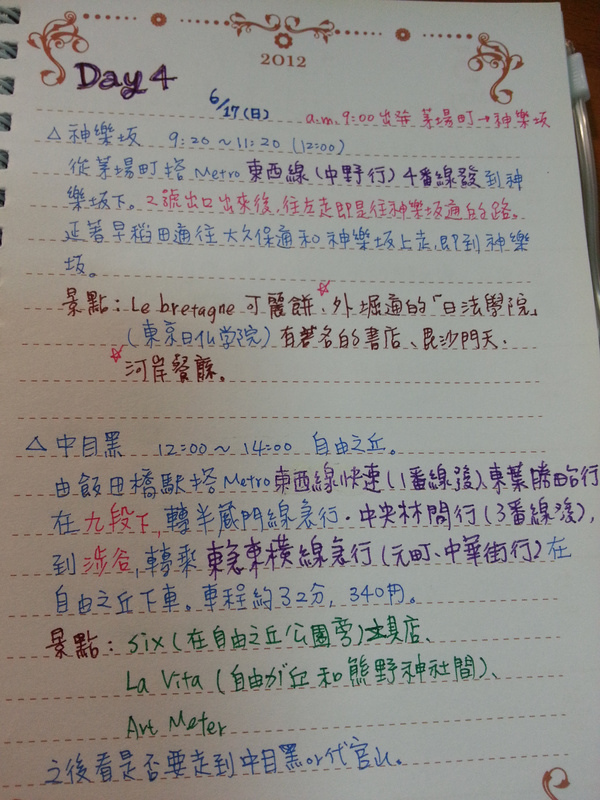 2012
Day 4
6/17(日) a.m. 9:00 出發 茅場町→神樂坂
△ 神樂坂 9:20～11:20 (12:00)
從茅場町搭 Metro 東西線(中野行)4番線發到神
樂坂下。2號出口出來後,往左走即是往神樂坂通的路。
延著早稻田通往大久保通和神樂坂上走,即到神樂
坂。
景點: Le bretagne 可麗餅、☆外堀通的「日法學院」
(東京日仏学院)有著名的書店、毘沙門天、
☆河岸餐廳。
△ 中目黑 12:00～14:00 自由之丘。
由飯田橋駅搭 Metro 東西線快速(1番線發)、東葉勝田台行
在九段下,轉半蔵門線急行・中央林間行(3番線發),
到涉谷,轉乘東急東橫線急行(元町、中華街行)在
自由之丘下車。車程約32分, 340円。
景點: six(在自由之丘公園旁)文具店、
La Vita (自由が丘和熊野神社間)、
Art Meter
之後看是否要走到中目黑or代官山。